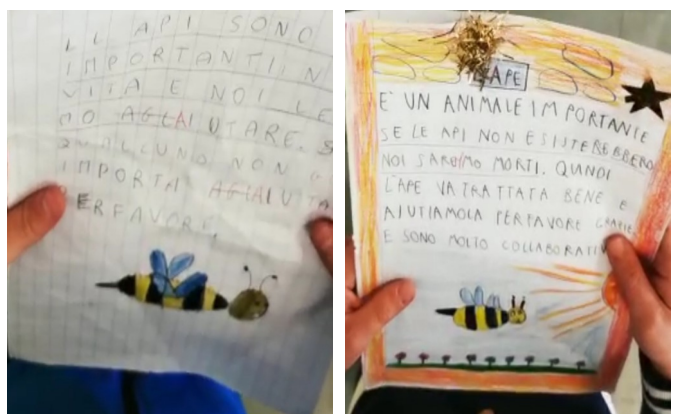 API SONO
IMPORTANTI
VITA E NOI LE
UTARE. S
NON
IMPORTA
PERFAVORE
APE
E' UN ANIMALE IMPORTANTE
SE LE API NON ESISTEREBBERO
NOI MORTI. QUNDI
L'APE VA TRATTATA BENE E
AIUTIAMOLA PERFAVORE GRAZIE
E SONO MOLTO COLLABORATIV